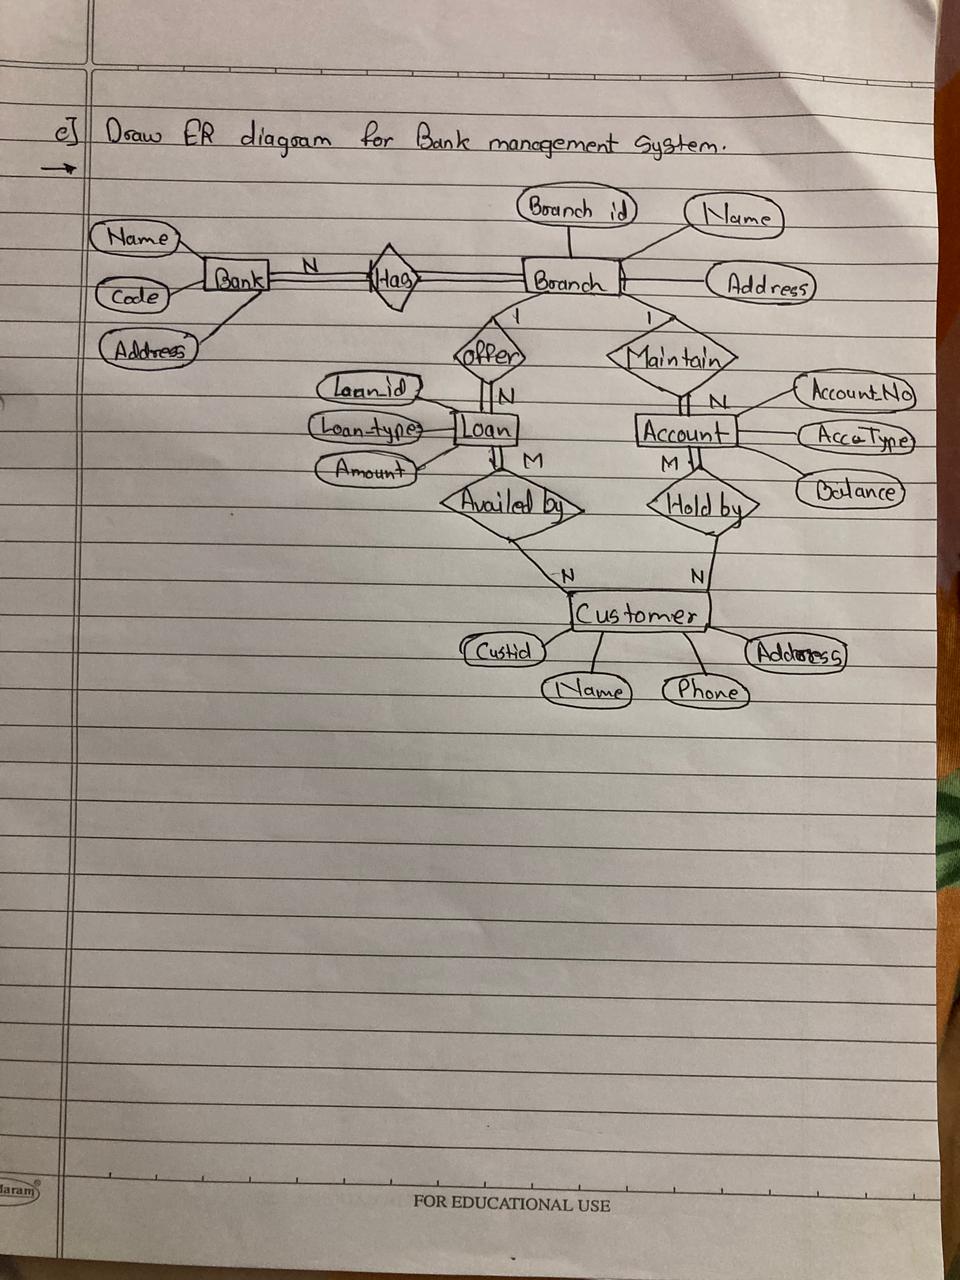 e] Draw ER diagram for Bank management System.
→
Branch id
Name
Name
Bank
N
Has
Branch
Code
Address
Address
1
1
offer
Maintain
Loan_id
N
N
Account_No
Loan_type
Loan
Account
Acc_Type
Amount
M
M
Balance
Availed by
Hold by
N
N
Customer
Custid
Address
Name
Phone
FOR EDUCATIONAL USE